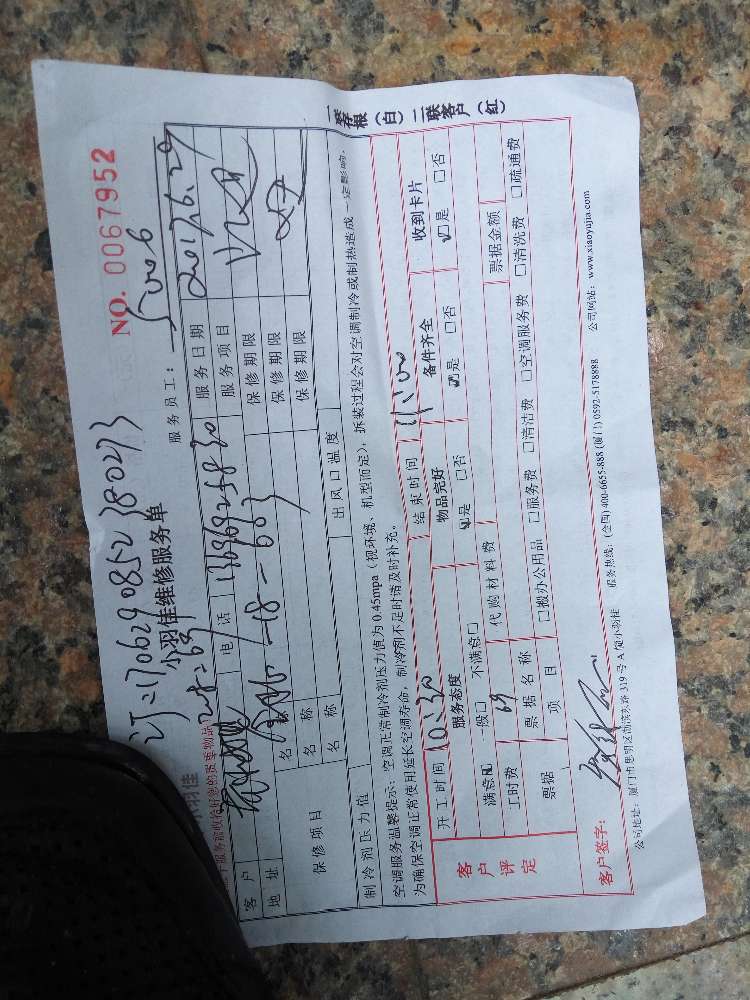 一存根(白) 二联客户(红)
NO. 0067952
订:1706290852380273
小羽佳维修服务单
小羽佳
服务员工: 5006
客户
电话 13696925830
服务日期 2017.6.29
地址
服务项目
保修项目
名称
保修期限
名称
保修期限
名称
保修期限
制冷剂压力值
出风口温度
空调服务温馨提示:空调正常制冷剂压力值为0.45mpa(视环境、机型而定),拆装过程会对空调制冷或制热造成一定影响,
为确保空调正常使用延长空调寿命,制冷剂不足时请及时补充。
客户评定
开工时间 10:30
结束时间 11:00
服务态度
物品完好
备件齐全
收到卡片
满意☑ 一般□ 不满意□
☑是 □否
☑是 □否
☑是 □否
工时费 69
代购材料费
票据金额
票据
票据名称
项目
□搬办公用品 □服务费 □清洁费 □空调服务费 □清洗费 □疏通费
客户签字:
服务热线:(全国)400-6655-888 (厦门)0592-5178888
公司网站:www.xiaoyujia.com